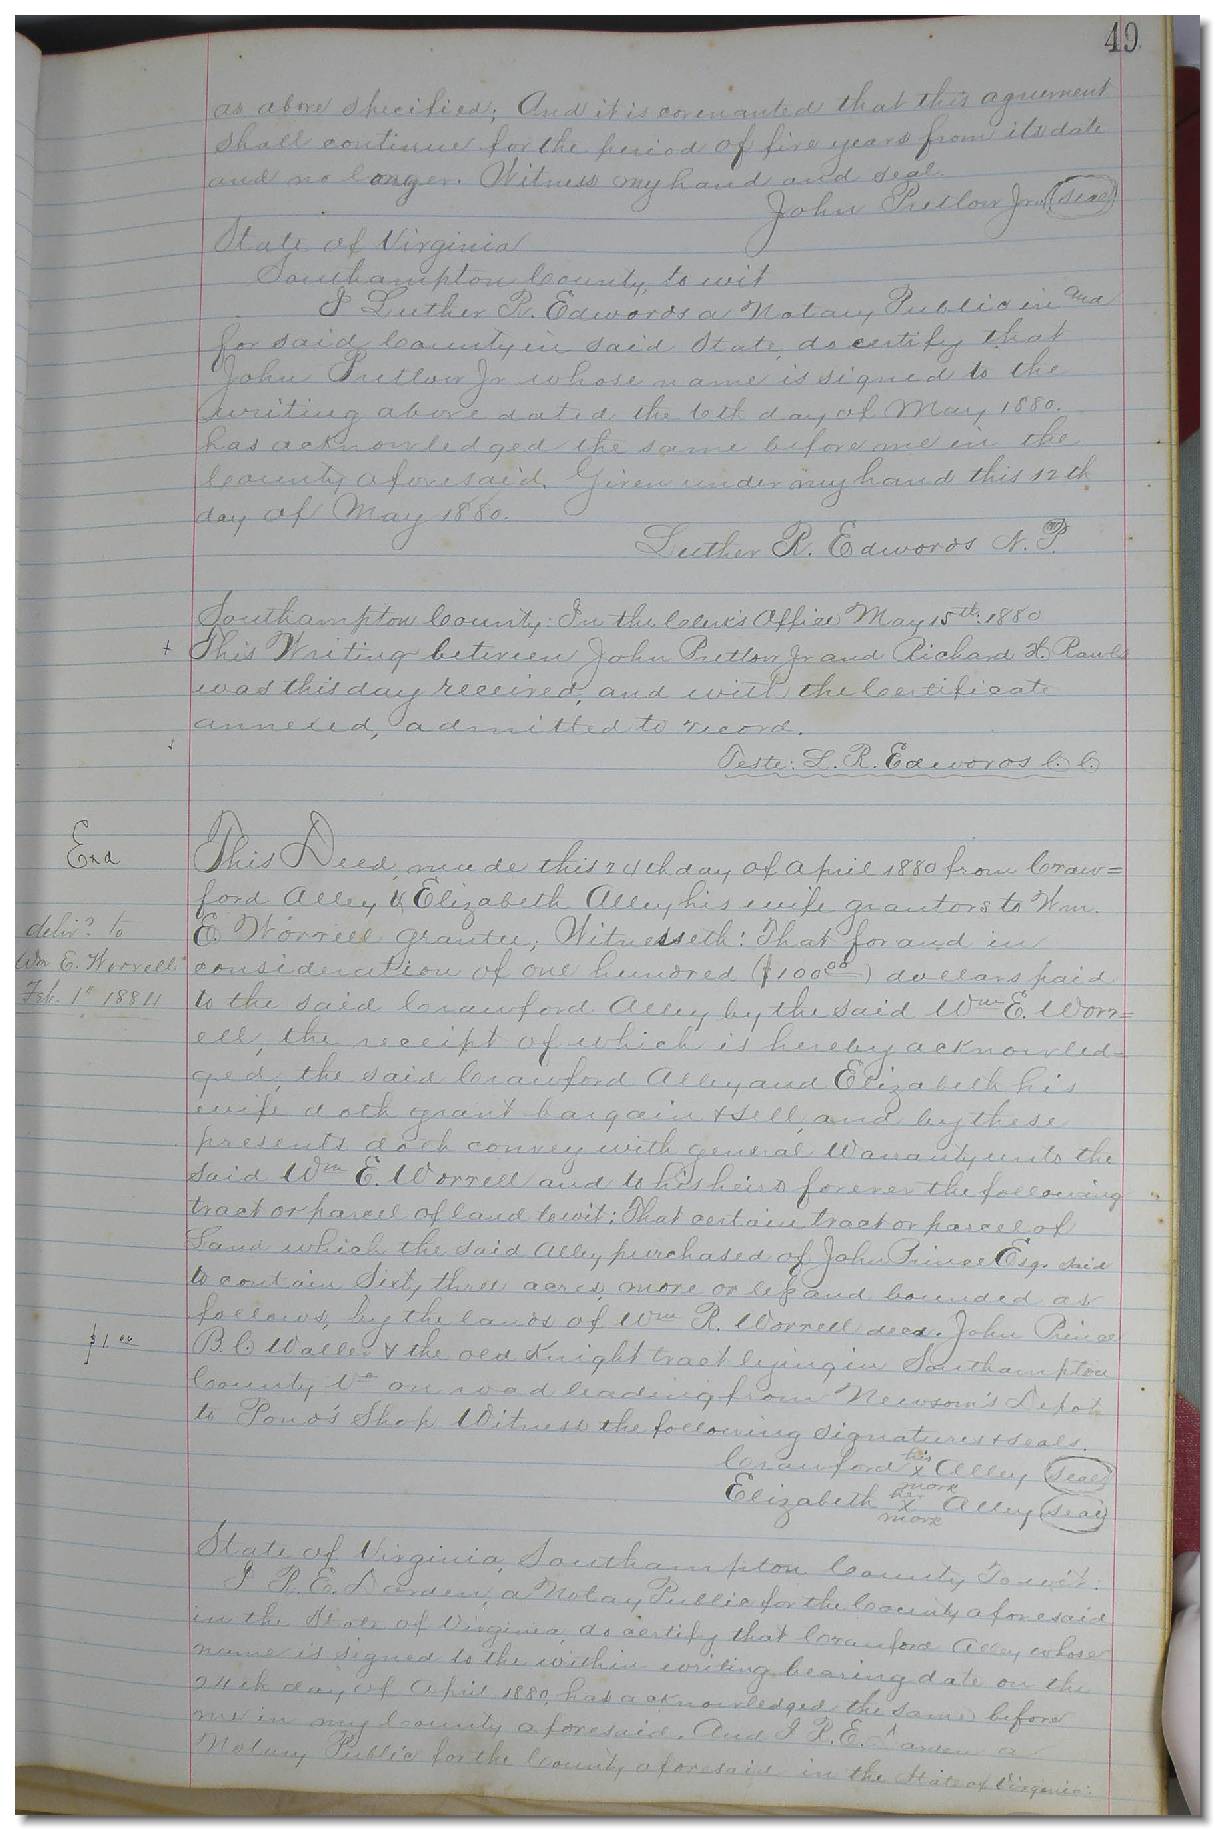 49
as above specified; And it is covenanted that this agreement
shall continue for the period of five years from its date
and no longer. Witness my hand and seal.
John Pretlow Jr. (seal)
State of Virginia
Southampton County, to wit
I Luther R. Edwards a Notary Public in and
for said County in said State, do certify that
John Pretlow Jr whose name is signed to the
writing above dated the 6th day of May 1880.
has acknowledged the same before me in the
County aforesaid. Given under my hand this 12th
day of May 1880.
Luther R. Edwards N. P.
Southampton County: In the Clerk's Office May 15th: 1880
+ This Writing between John Pretlow Jr and Richard H. Rawls
was this day received, and with the Certificate
annexed, admitted to record.
Teste: L. R. Edwards C. C.
Exd
This Deed, made this 24th day of April 1880 from Craw=
ford Alley & Elizabeth Alley his wife grantors to Wm.
deliv.d to
E. Worrell grantee; Witnesseth: That for and in
Wm E. Worrell
consideration of one hundred ($100.00) dollars paid
Feb. 1st 1881
to the said Crawford Alley by the said Wm E. Worr=
ell, the receipt of which is hereby acknowled=
ged, the said Crawford Alley and Elizabeth his
wife doth grant bargain & sell, and by these
presents doth convey with general Warranty unto the
said Wm E. Worrell and to his heirs forever the following
tract or parcel of land to wit: That certain tract or parcel of
Land which the said Alley purchased of John Prince Esq. said
to contain Sixty three acres, more or less and bounded as
follows, by the lands of Wm R. Worrell decd. John Prince
$1.00
B. C. Waller & the old Knight tract lying in Southampton
County Va on road leading from Newsom's Depot
to Pond's Shop Witness the following signatures & seals.
Crawford his x mark Alley (seal)
Elizabeth her x mark Alley (seal)
State of Virginia, Southampton County To wit:
I R. E. Darden, a Notay Public for the County aforesaid
in the State of Virginia, do certify that Crawford Alley whose
name is signed to the within writing bearing date on the
24th day of April 1880, has acknowledged the same before
me in my County aforesaid. And I R. E. Darden a
Notary Public for the County aforesaid in the State of Virginia: